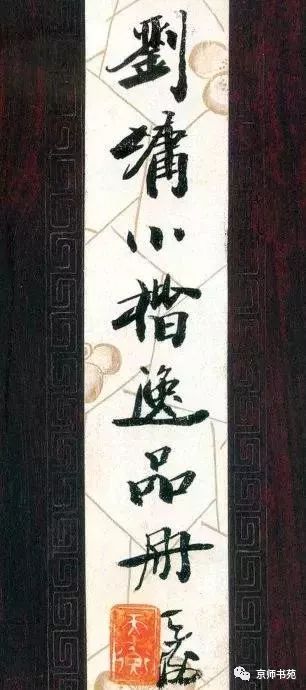 劉墉小楷逸品冊
京师书苑